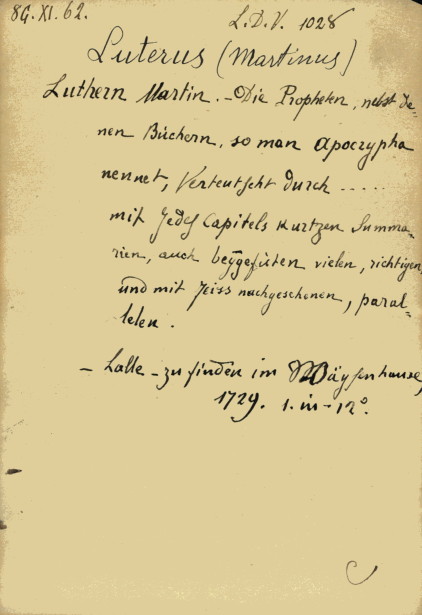 8G. XI. 62.
L.D.V. 1028
Luterus (Martinus)
Luthern Martin. - Die Propheten, nebst de-
nen Büchern, so man Apocrypha
nennet, Verteutscht durch .....
mit Jedes Capitels Kurtzen Summa-
rien, auch beÿgefüten vielen, richtigen
und mit Feiss nachgesehenen, paral-
lelen.
- Halle - zu finden im Wäysenhause,
1729. 1. in - 12º.